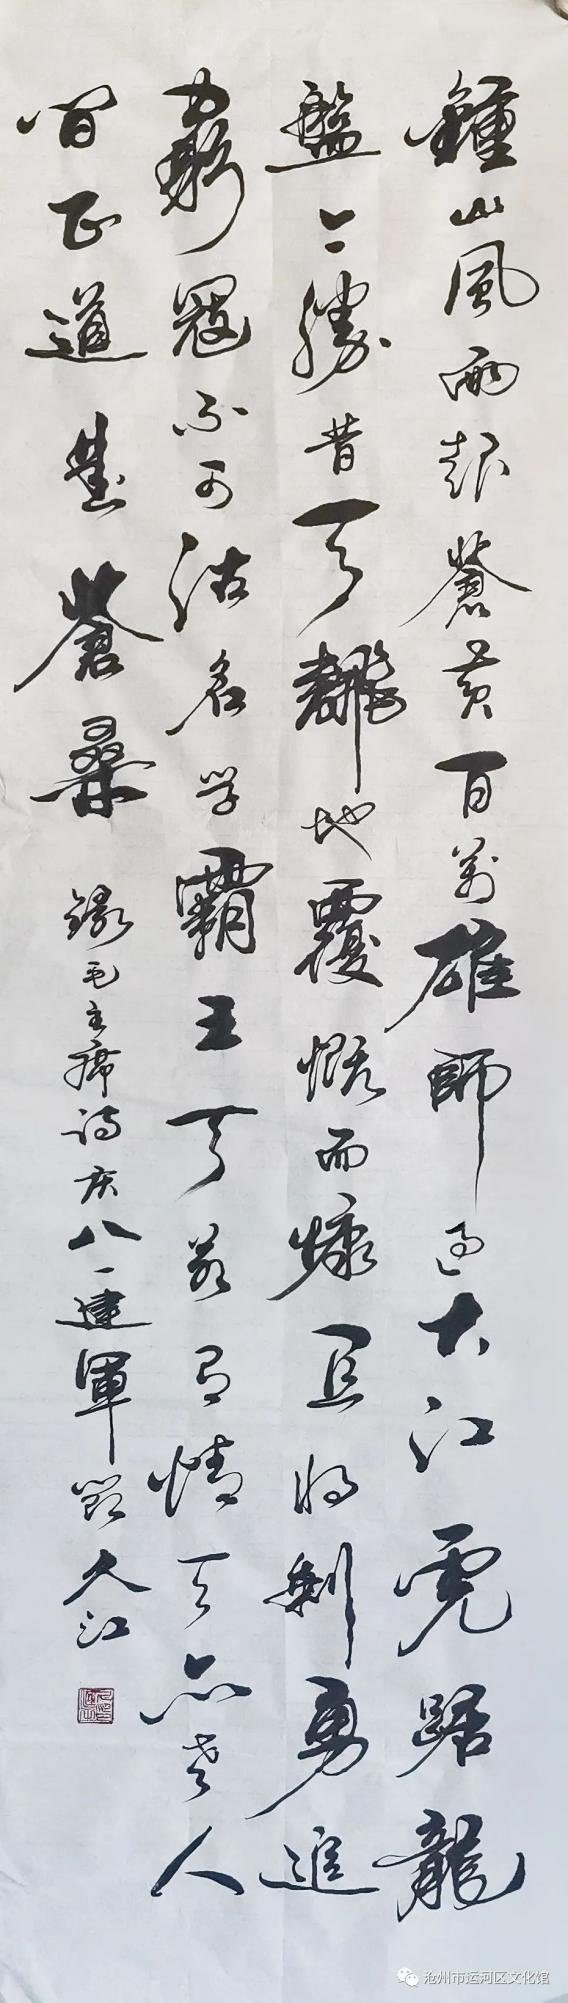 鍾山風雨起蒼黃百萬雄師過大江虎踞龍
盤今勝昔天翻地覆慨而慷宜將剩勇追
窮寇不可沽名学霸王天若有情天亦老人
間正道是蒼桑
錄毛主席詩庆八一建軍節久江
沧州市运河区文化馆